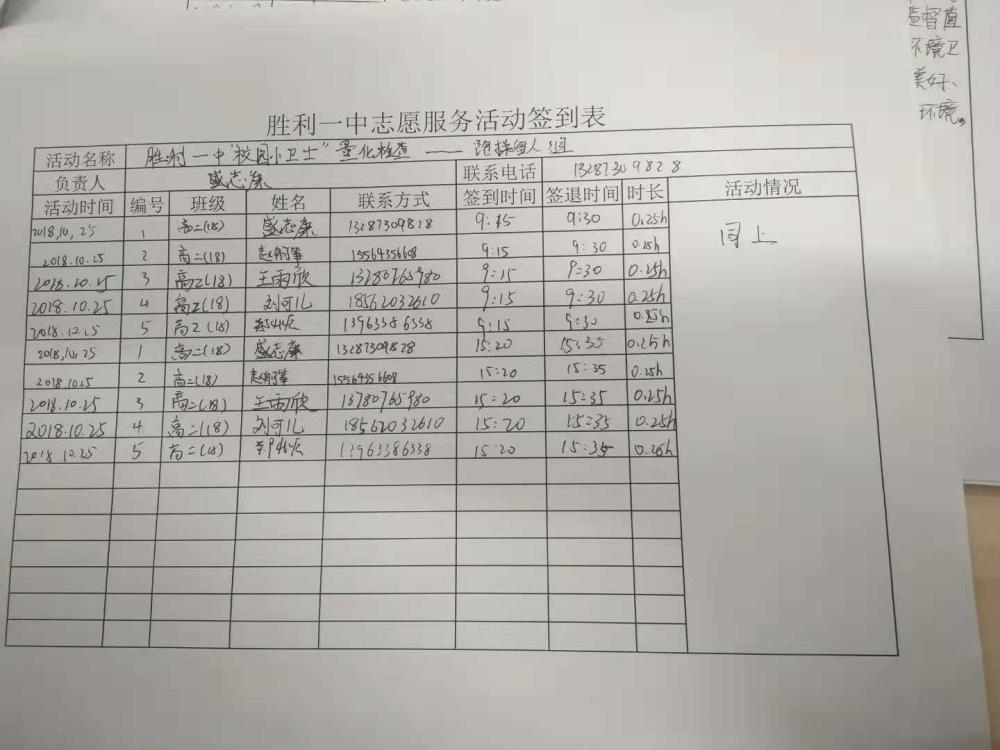 监督值
环境卫
美好、
环境。
胜利一中志愿服务活动签到表
活动名称 胜利一中"校园小卫士"量化检查 ——
负责人 盛志康 联系电话 13287309828
活动时间 编号 班级 姓名 联系方式 签到时间 签退时间 时长 活动情况
2018.10.25 1 高二(18) 盛志康 13287309828 9:15 9:30 0.25h 同上
2018.10.25 2 高二(18) 15564356608 9:15 9:30 0.25h
2018.10.25 3 高二(18) 王雨欣 13780765980 9:15 9:30 0.25h
2018.10.25 4 高二(18) 刘可儿 18562032610 9:15 9:30 0.25h
2018.10.25 5 高二(18) 13963386338 9:15 9:30 0.25h
2018.10.25 1 高二(18) 盛志康 13287309828 15:20 15:35 0.25h
2018.10.25 2 高二(18) 15564356608 15:20 15:35 0.25h
2018.10.25 3 高二(18) 王雨欣 13780765980 15:20 15:35 0.25h
2018.10.25 4 高二(18) 刘可儿 18562032610 15:20 15:35 0.25h
2018.10.25 5 高二(18) 13963386338 15:20 15:35 0.25h